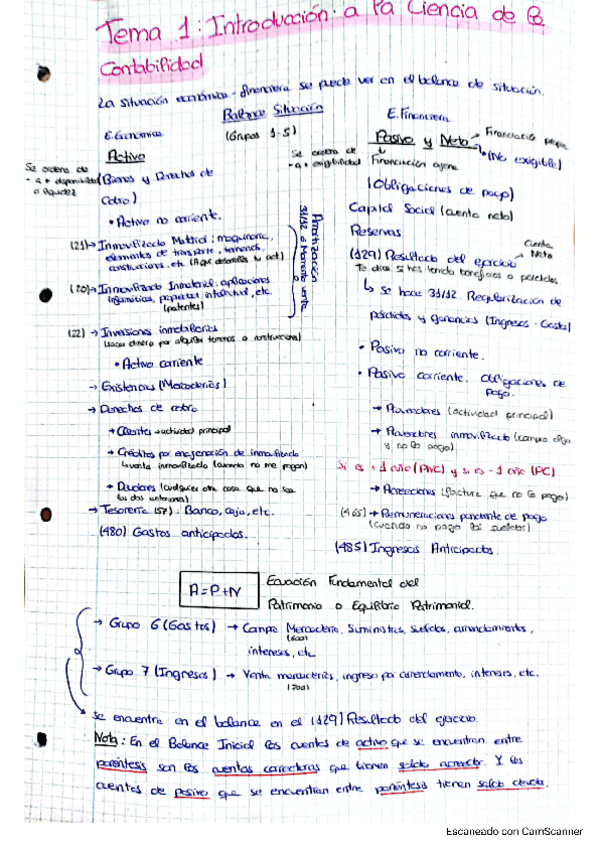 Tema 1: Introducción a la Ciencia de la
Contabilidad
La situación económica-financiera se puede ver en el balance de situación.
Balance Situación
(Grupos 1-5)
E. Económica
Activo
Se ordena de
- a + disponibilidad
o liquidez
(Bienes y Derechos de
Cobro)
• Activo no corriente.
(21)→ Inmovilizado Material: maquinaria,
elementos de transporte, terrenos,
construcciones, etc
(20)→ Inmovilizado Inmaterial: aplicaciones
informáticas, propiedad intelectual, etc.
(patentes)
Amortización
31/12 o Momento venta
(22) → Inversiones inmobiliarias
(sacar dinero por alquilar terrenos o construcciones)
• Activo corriente
→ Existencias (Mercaderías)
→ Derechos de cobro
→ Clientes → actividad principal
→ Créditos por enajenación de inmovilizado
(venta inmovilizado (cuando no me pagan)
→ Deudores (cualquier otra cosa que no sea
los dos anteriores)
→ Tesorería (57): Banco, caja, etc.
(480) Gastos anticipados.
E. Financiera
Pasivo y Neto
→ Financiación propia
(No exigible)
Se ordena de
- a + exigibilidad
Financiación ajena
(Obligaciones de pago)
Capital Social (cuenta neto)
Reservas
(129) Resultado del ejercicio → Cuenta
Neto
Te dice si has tenido beneficios o pérdidas
↳ se hace 31/12. Regularización de
pérdidas y ganancias (Ingresos - Gastos)
• Pasivo no corriente.
• Pasivo corriente. Obligaciones de
pago.
→ Proveedores (actividad principal)
→ Proveedores inmovilizado (compro algo
y no lo pago)
Si es +1 año (PNC) y si es -1 año (PC)
→ Acreedores (factura que no la pago)
(465) → Remuneraciones pendiente de pago
(cuando no pago los sueldos)
(485) Ingresos Anticipados.
A=P+N
Ecuación Fundamental del
Patrimonio o Equilibrio Patrimonial.
→ Grupo 6 (Gastos) → Compra Mercadería, Suministros, sueldos, arrendamientos,
(600)
intereses, etc
→ Grupo 7 (Ingresos) → Venta mercaderías, ingreso por arrendamiento, intereses, etc.
(700)
se encuentra en el balance en el (129) Resultado del ejercicio.
Nota: En el Balance Inicial las cuentas de activo que se encuentran entre
paréntesis son las cuentas correctoras que tienen saldo acreedor. Y las
cuentas de pasivo que se encuentran entre paréntesis tienen saldo deudor.
Escaneado con CamScanner